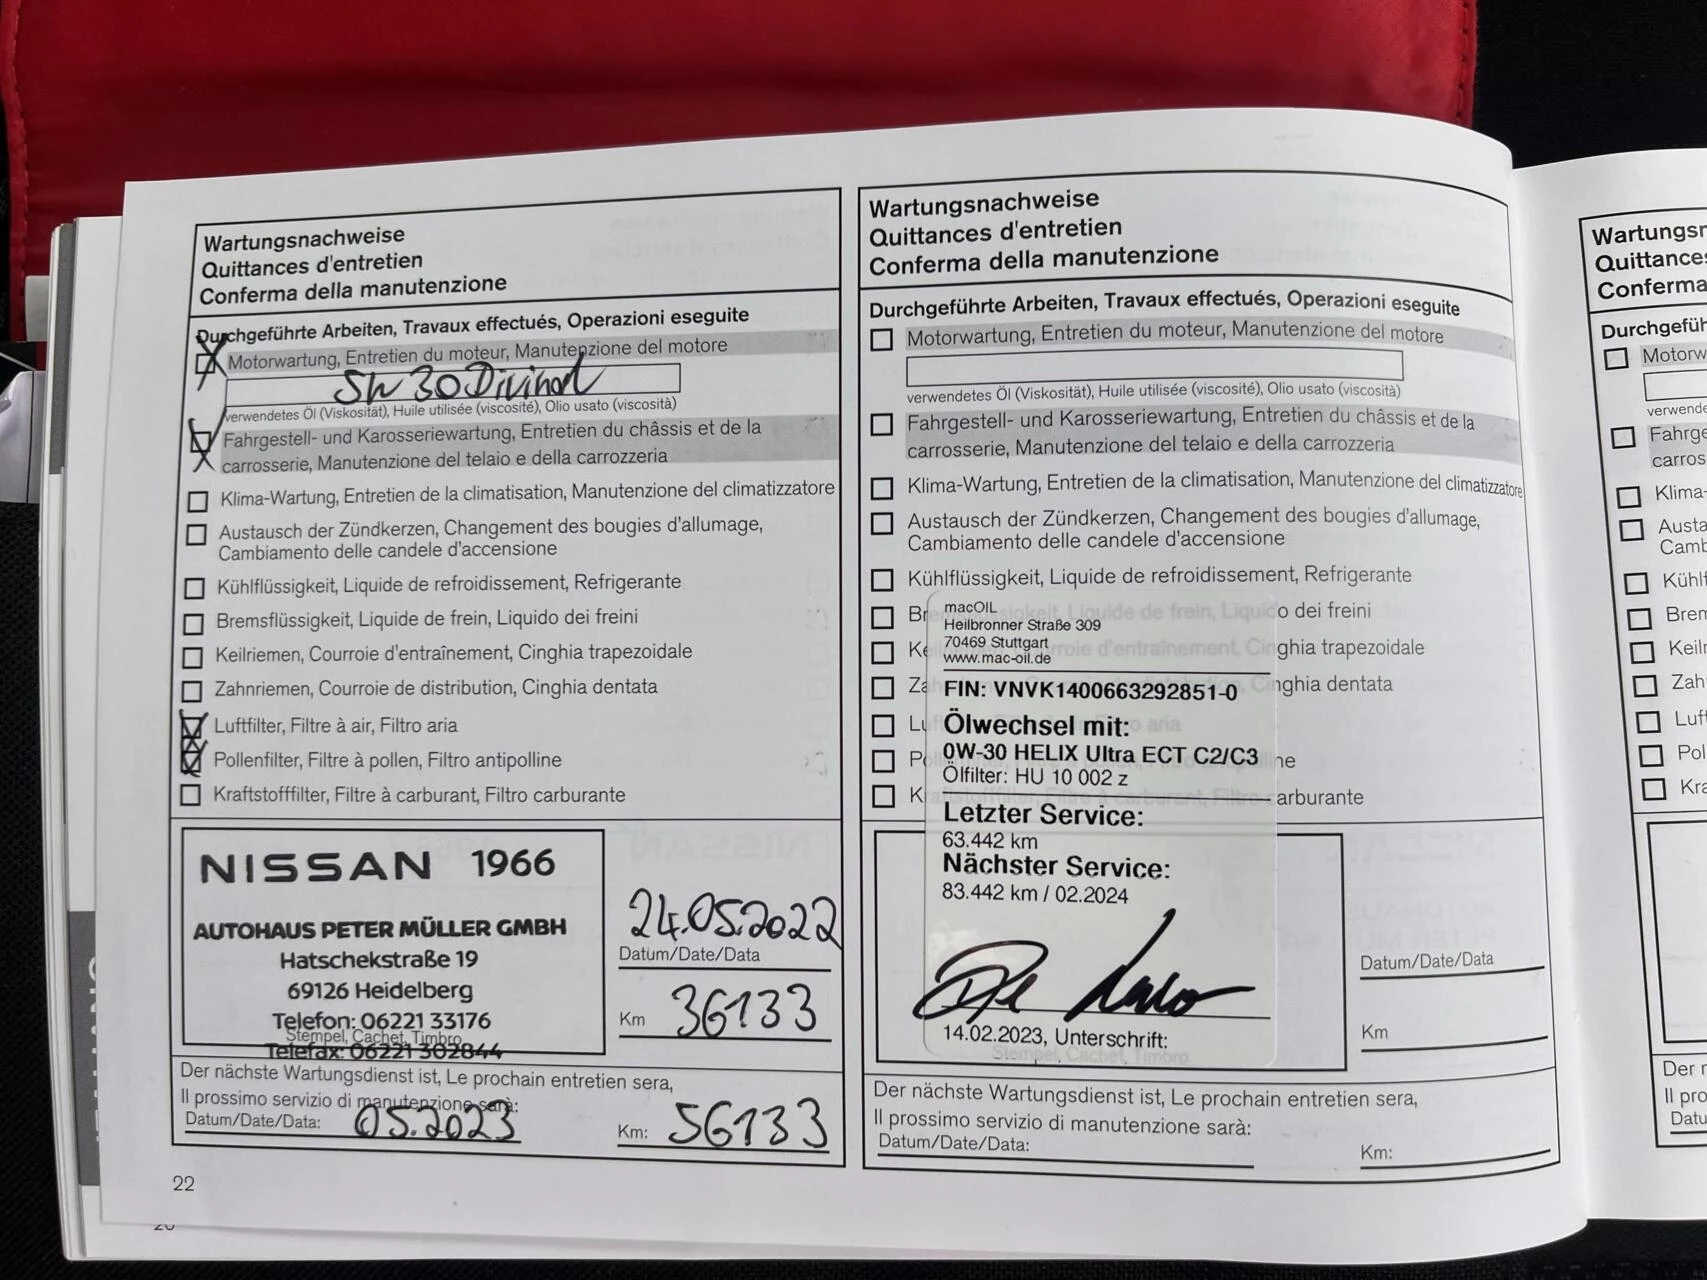 Wartungsnachweise
Quittances d'entretien
Conferma della manutenzione
Durchgeführte Arbeiten, Travaux effectués, Operazioni eseguite
Motorwartung, Entretien du moteur, Manutenzione del motore
5W30 Divinol
verwendetes Öl (Viskosität), Huile utilisée (viscosité), Olio usato (viscosità)
Fahrgestell- und Karosseriewartung, Entretien du châssis et de la
carrosserie, Manutenzione del telaio e della carrozzeria
Klima-Wartung, Entretien de la climatisation, Manutenzione del climatizzatore
Austausch der Zündkerzen, Changement des bougies d'allumage,
Cambiamento delle candele d'accensione
Kühlflüssigkeit, Liquide de refroidissement, Refrigerante
Bremsflüssigkeit, Liquide de frein, Liquido dei freini
Keilriemen, Courroie d'entraînement, Cinghia trapezoidale
Zahnriemen, Courroie de distribution, Cinghia dentata
Luftfilter, Filtre à air, Filtro aria
Pollenfilter, Filtre à pollen, Filtro antipolline
Kraftstofffilter, Filtre à carburant, Filtro carburante
NISSAN 1966
AUTOHAUS PETER MÜLLER GMBH
Hatschekstraße 19
69126 Heidelberg
Telefon: 06221 33176
Stempel, Cachet, Timbro
Telefax: 06221 302844
24.05.2022
Datum/Date/Data
Km 36133
Der nächste Wartungsdienst ist, Le prochain entretien sera,
Il prossimo servizio di manutenzione sarà:
Datum/Date/Data: 05.2023
Km: 56133
22
Wartungsnachweise
Quittances d'entretien
Conferma della manutenzione
Durchgeführte Arbeiten, Travaux effectués, Operazioni eseguite
Motorwartung, Entretien du moteur, Manutenzione del motore
verwendetes Öl (Viskosität), Huile utilisée (viscosité), Olio usato (viscosità)
Fahrgestell- und Karosseriewartung, Entretien du châssis et de la
carrosserie, Manutenzione del telaio e della carrozzeria
Klima-Wartung, Entretien de la climatisation, Manutenzione del climatizzatore
Austausch der Zündkerzen, Changement des bougies d'allumage,
Cambiamento delle candele d'accensione
Kühlflüssigkeit, Liquide de refroidissement, Refrigerante
Liquide de frein, Liquido dei freini
Courroie d'entraînement, Cinghia trapezoidale
Cinghia dentata
Filtro aria
Kraftstofffilter, Filtre à carburant, Filtro carburante
macOIL
Heilbronner Straße 309
70469 Stuttgart
www.mac-oil.de
FIN: VNVK1400663292851-0
Ölwechsel mit:
0W-30 HELIX Ultra ECT C2/C3
Ölfilter: HU 10 002 z
Letzter Service:
63.442 km
Nächster Service:
83.442 km / 02.2024
14.02.2023, Unterschrift:
Stempel, Cachet, Timbro
Datum/Date/Data
Km
Der nächste Wartungsdienst ist, Le prochain entretien sera,
Il prossimo servizio di manutenzione sarà:
Datum/Date/Data:
Km:
Wartungsn
Quittances
Conferma
Durchgeführ
Motorw
verwende
Fahrge
carros
Klima-
Austa
Camb
Kühlf
Brem
Keilr
Zah
Luf
Pol
Kra
Der n
Il pro
Datu